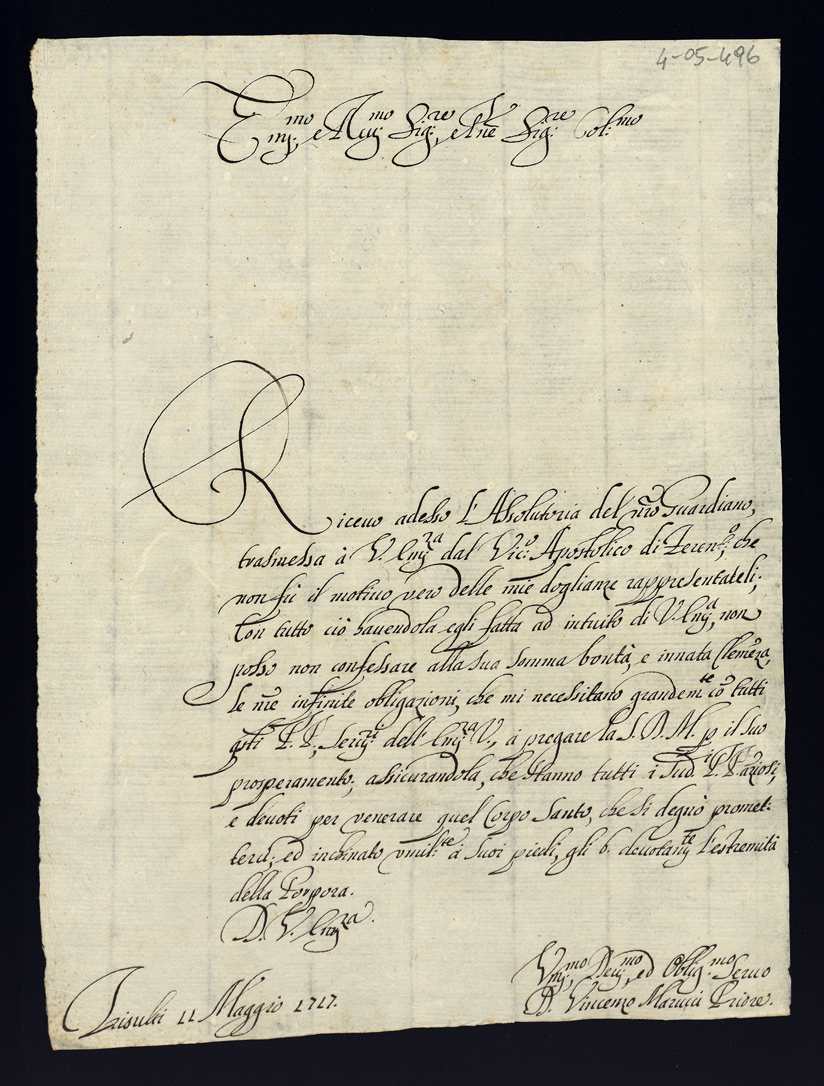 4-05-496
Em̃mo, e Rev̄mo Sig:re, e Pñe Sig:re Col:mo
Riceuo adesso l'Assolutoria del nr̃o Guardiano,
trasmessa à V. Em̃za dal Vic:o Apostolico di Feren:o, che
non fù il motiuo vero delle mie doglianze rappresentateli;
Con tutto ciò hauendola egli fatta ad intuito di V. Em̃a, non
posso non confessare alla sua somma bontà, e innata Clemẽza,
le me infinite obligazioni, che mi necessitano grandem:te cõ tutti
q̃sti P.P., Seru:ri dell'Em̃za V., à pregare la S. D. M. p il suo
prosperamento; assicurandola, che stanno tutti i sud:i P.P. anziosi,
e deuoti per venerare quel Corpo Santo, che si degnò promet:
terci; ed inchinato vmil:te a' suoi piedi, gli b. deuotam:te l'estremità
della Porpora.
D. V. Em̃za.
Trisulti 11 Maggio 1717.
Vm̃mo, Deu:mo, ed Oblig:mo Seruo
D. Vincenzo Marucci Priore.